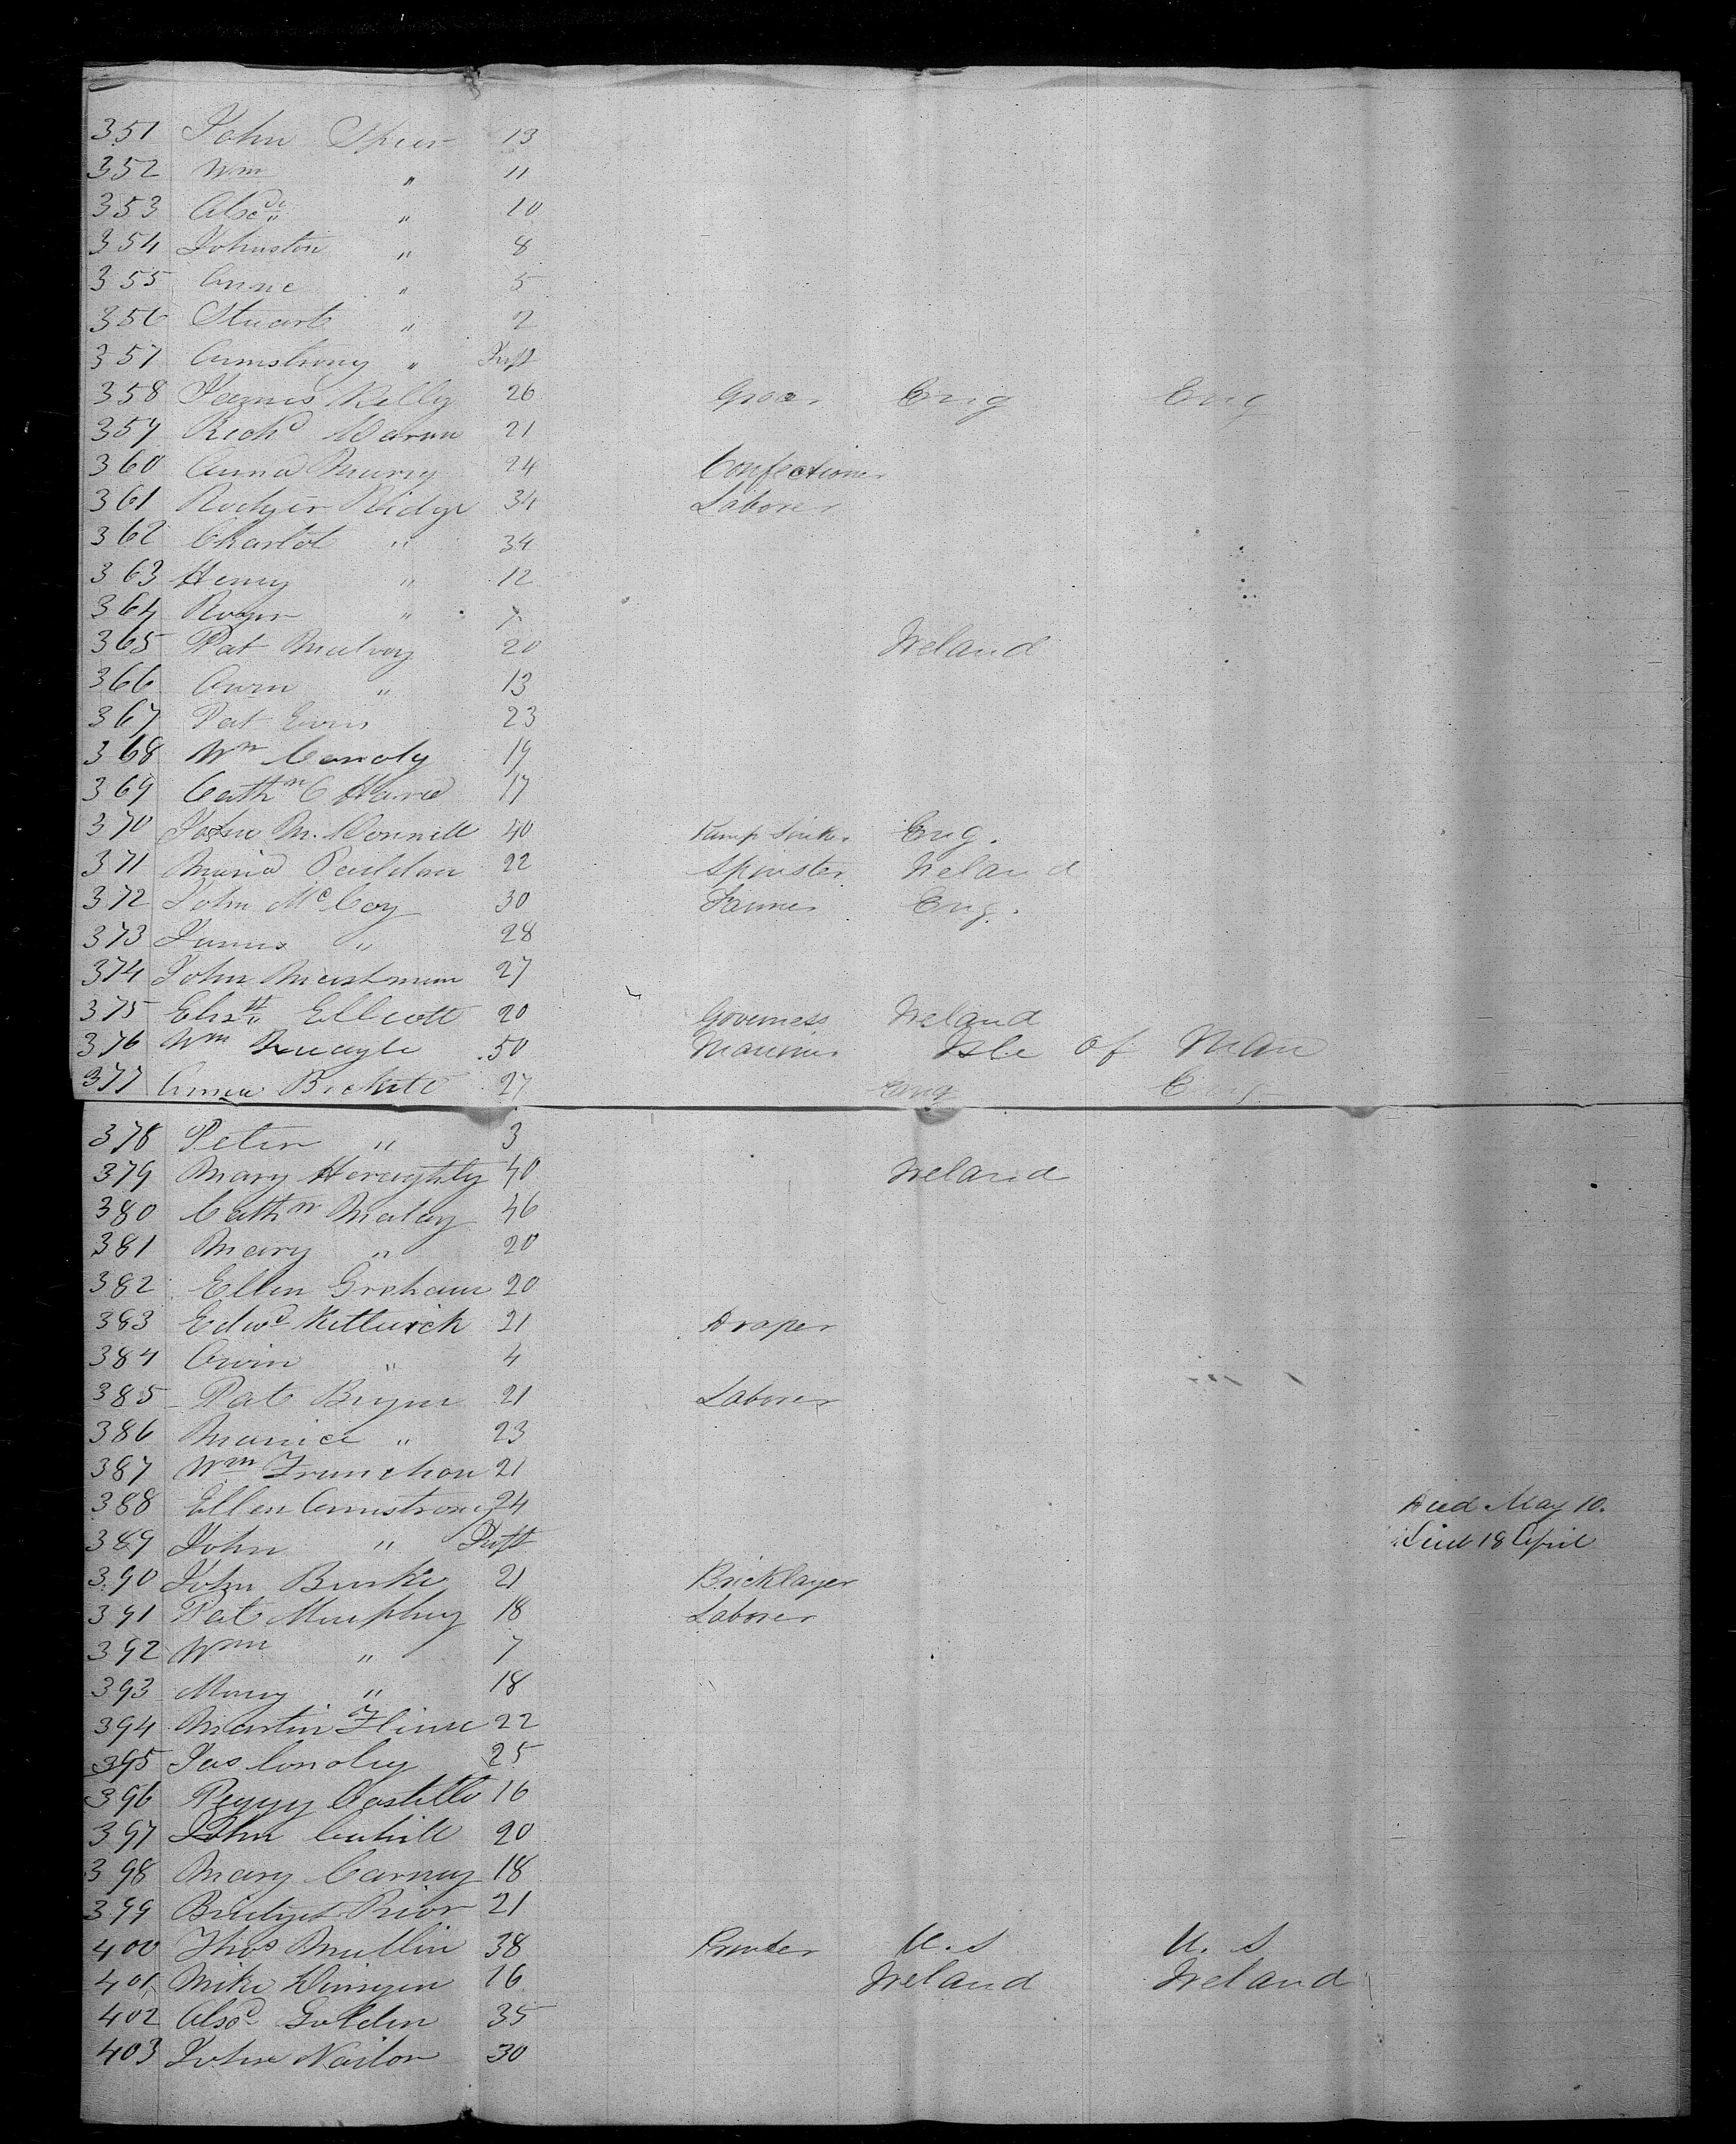 351 John Speer 13
352 Wm " 11
353 Alexdr " 10
354 Johnston " 8
355 Anne " 5
356 Stuart " 2
357 Armstrong " Inft
358 James Kelly 26 Grocer Eng Eng
359 Richd 21
360 Anna Murry 24 Confectioner
361 Rodger Ridge 34 Laborer
362 Charlot " 34
363 Henry " 12
364 Roger " 7
365 Pat Mulvey 20 Ireland
366 Ann " 13
367 Pat 23
368 Wm Conoly 19
369 Cathn O Hara 17
370 John M. Donnell 40 Pump Sinker Eng.
371 Maria 22 Spinster Ireland
372 John McCoy 30 Farmer Eng.
373 James " 28
374 John 27
375 Elizth Ellcott 20 Governess Ireland
376 Wm Quayle 50 Mariner Isle of Man
377 Anna 27 Eng Eng
378 Peter " 3
379 Mary Heraghty 40 Ireland
380 Cathn Malay 46
381 Mary " 20
382 Ellen Greham 20
383 Edwd 21 Draper
384 " 4
385 Pat Bryne 21 Laborer
386 " 23
387 Wm 21
388 Ellen Armstrong 24 Died May 10.
389 John " Inft Died 18 April
390 John Burke 21 Bricklayer
391 Pat Murphy 18 Laborer
392 Wm " 7
393 Mary " 18
394 Martin 22
395 Jas Conoley 25
396 Peggy Costello 16
397 John Cahill 20
398 Mary Carney 18
399 Bridget Prior 21
400 Thos Mullin 38 Printer U.S U.S
401 Mike 16 Ireland Ireland
402 Golden 35
403 John Nailon 30